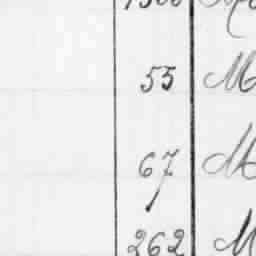 55 M
67 M
262 M